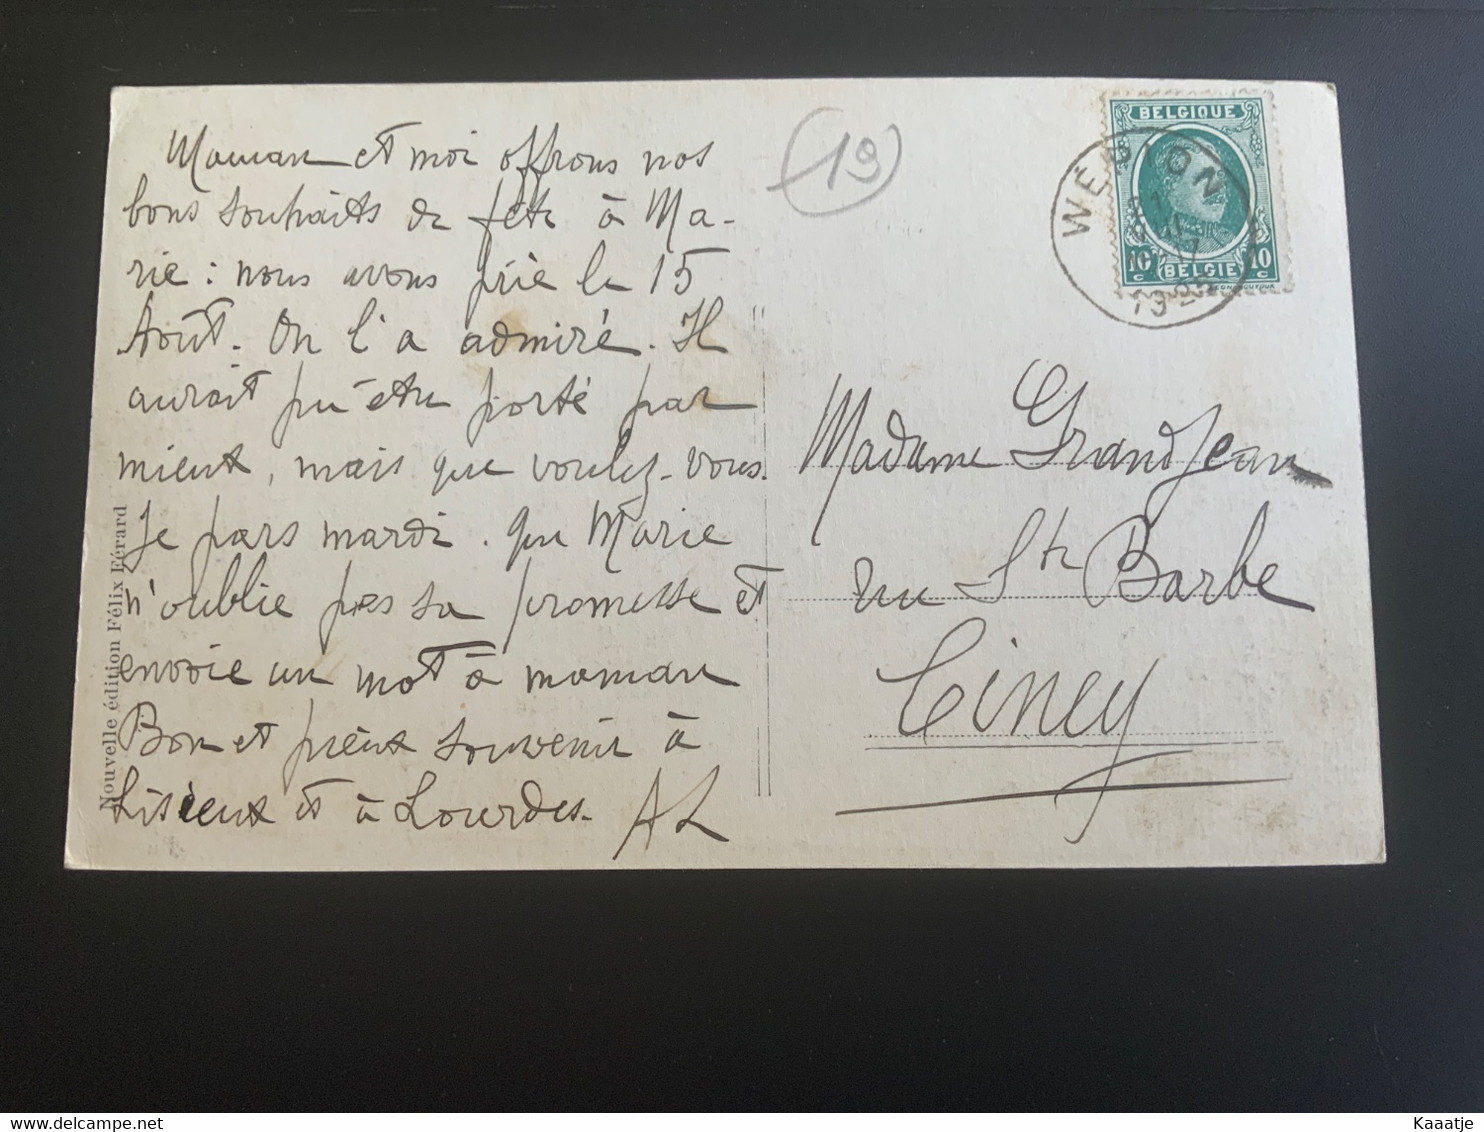 Maman et moi offrons nos
bons souhaits de fête à Ma-
rie : nous avons prié le 15
Août. On l'a admiré. Il
aurait pu être porté par
mieux, mais que voulez-vous.
Je pars mardi. Que Marie
n'oublie pas sa promesse et
envoie un mot à maman
Bon et pieux souvenir à
Lisieux et à Lourdes. AL
Nouvelle édition Félix Férard
(19)
BELGIQUE
10 c BELGIE 10 c
WÉPION
Madame Grandjean
rue Ste Barbe
Ciney
Kaaatje